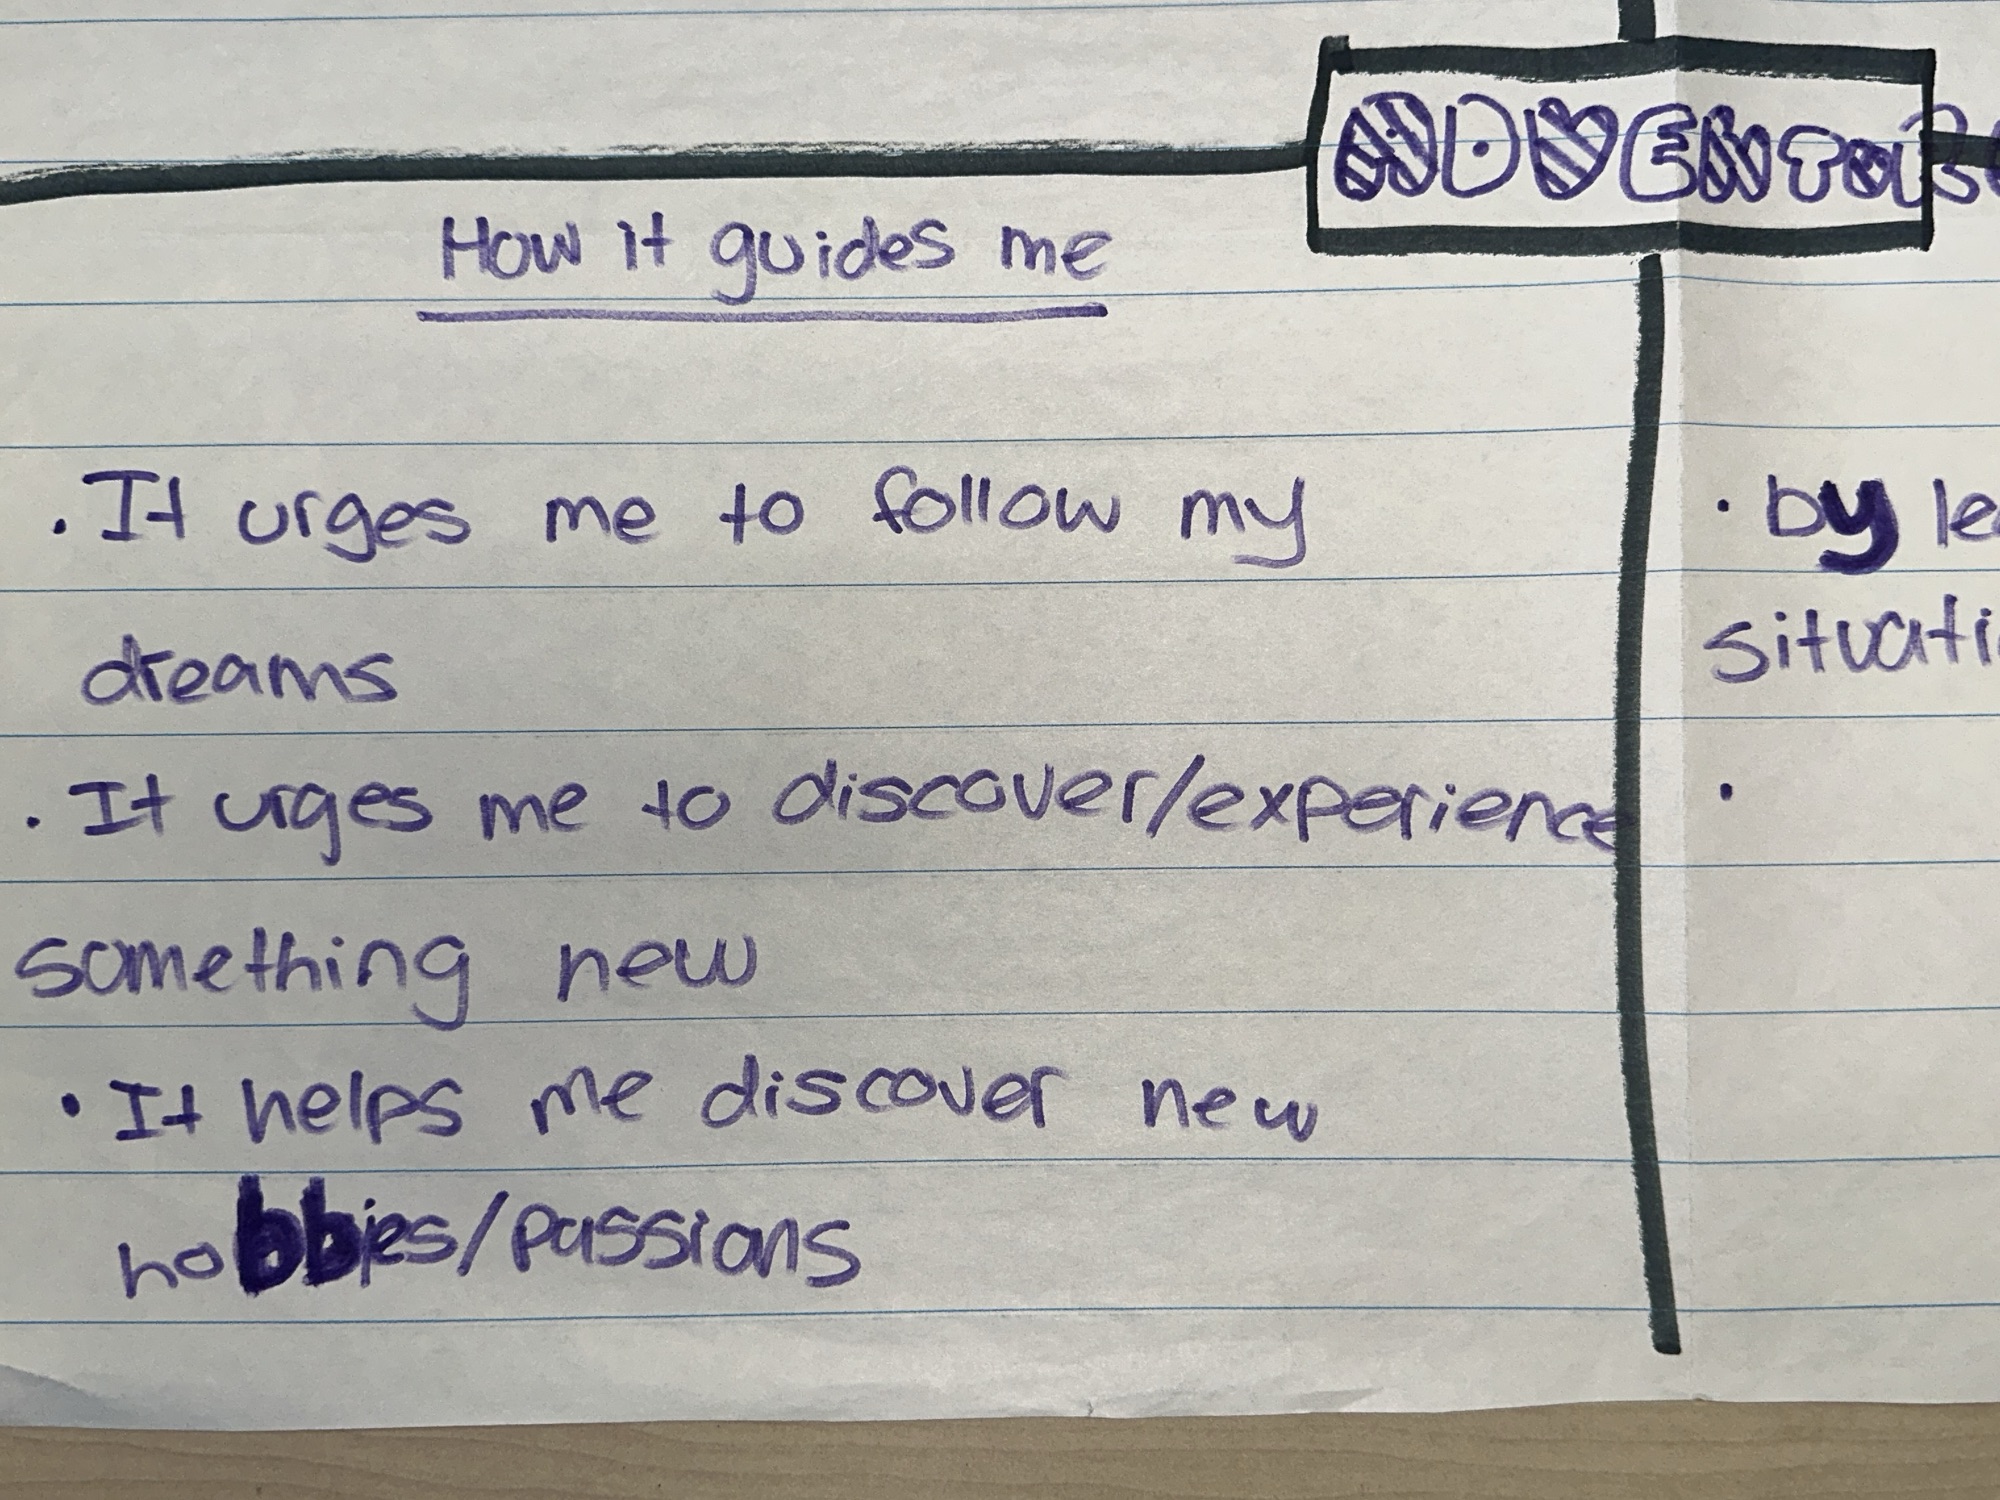 How it guides me
. It urges me to follow my
dreams
. It urges me to discover/experience
something new
• It helps me discover new
hobbies/passions
• by
•